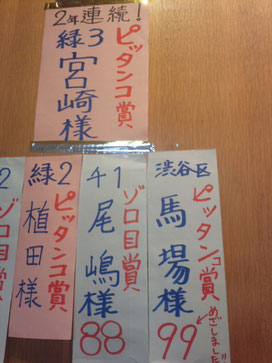 2年連続!
ピッタンコ賞
緑3
宮崎様
渋谷区
ピッタンコ賞
馬場様
めざしました!!
99
41
ゾロ目賞
尾嶋様
88
緑2
ピッタンコ賞
植田様
2
ゾロ目